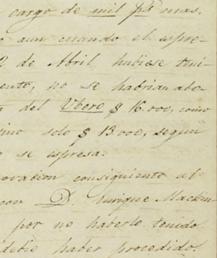 cargo de mil p.s mas.
aun cuando el espre-
2 de Abril hubiese teni-
ento, no se habrian abo-
del Ubero $ 16.000, como
ino solo $ 13.000, segun
se espresa.
ovacion consiguiente al
con D. Enrique Mackin
por no haberlo tenido
debio haber procedido